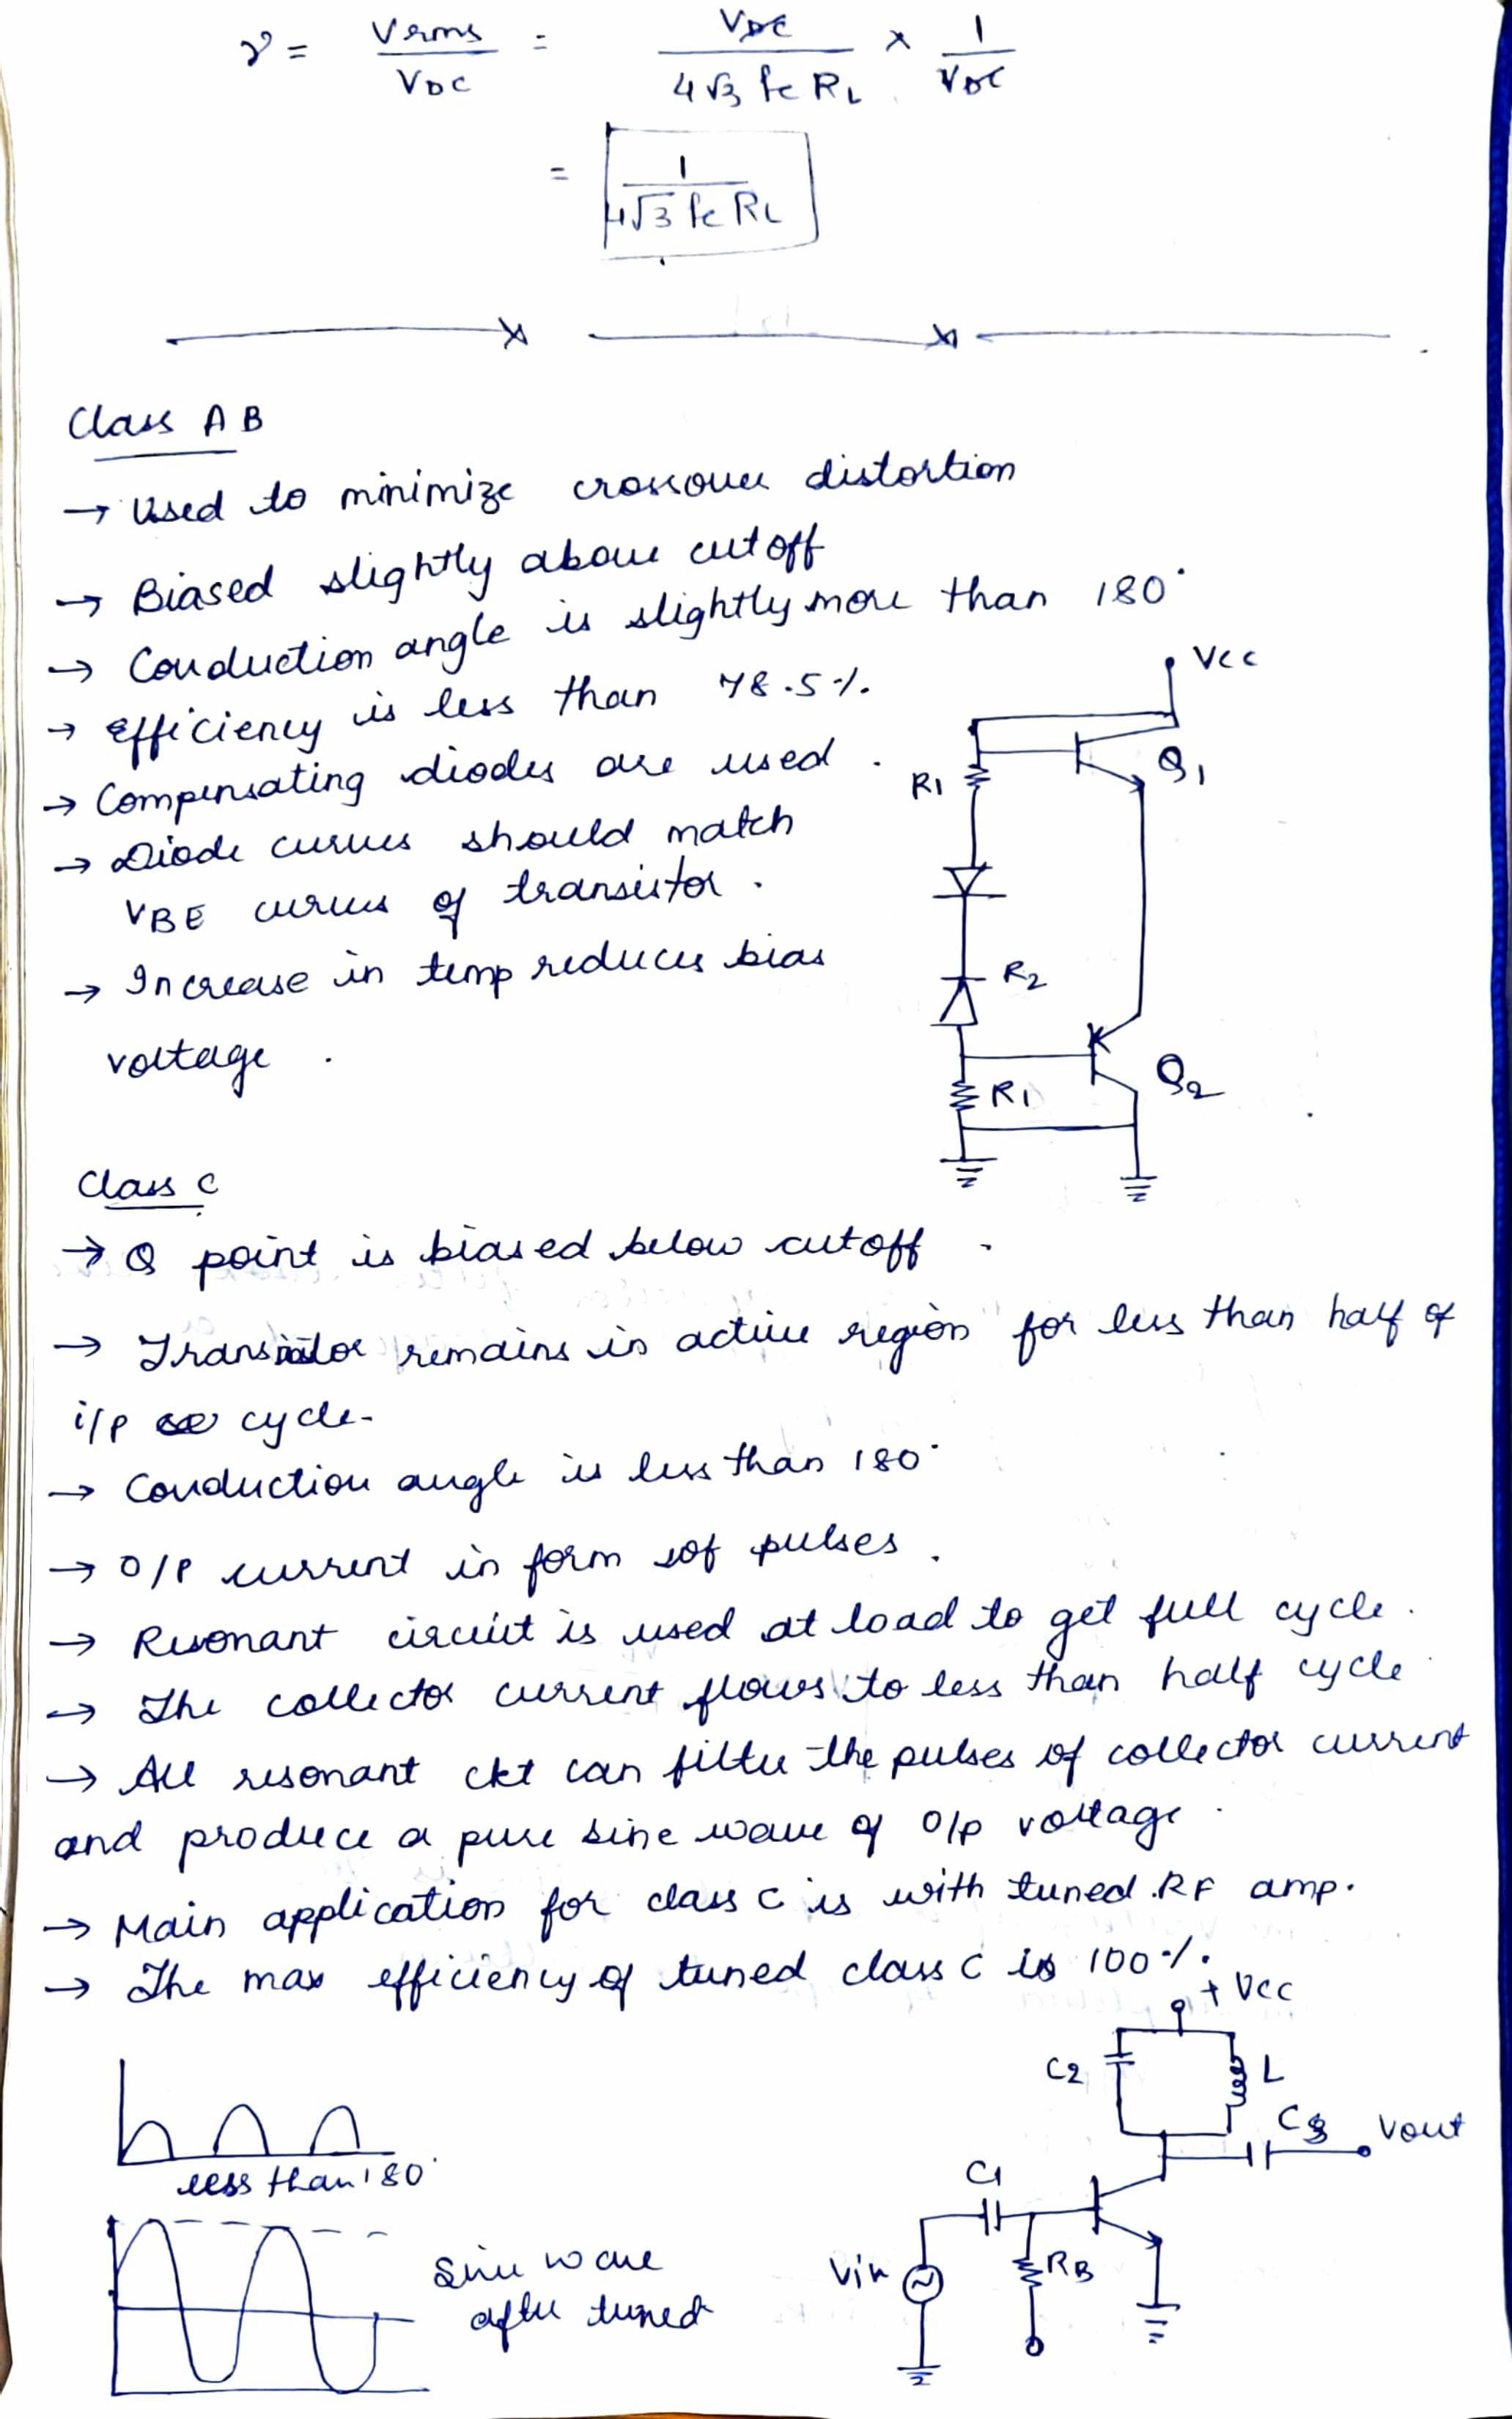 γ = Vrms / VDC = VDC / 4√3 fc RL × 1 / VDC
= 1 / 4√3 fc RL
Class AB
→ Used to minimize crossover distortion
→ Biased slightly above cutoff
→ Conduction angle is slightly more than 180°
→ Efficiency is less than 78.5%.
→ Compensating diodes are used.
→ Diode curves should match
VBE curves of transistor.
→ Increase in temp reduces bias
voltage.
Vcc
Q1
R1
R2
R1
Q2
Class C
→ Q point is biased below cutoff.
→ Transistor remains in active region for less than half of
i/p cycle.
→ Conduction angle is less than 180°
→ O/P current in form of pulses.
→ Resonant circuit is used at load to get full cycle.
→ The collector current flows to less than half cycle
→ All resonant ckt can filter the pulses of collector current
and produce a pure sine wave of O/p voltage.
→ Main application for class C is with tuned RF amp.
→ The max efficiency of tuned class C is 100%.
+Vcc
C2
L
C3
Vout
C1
Vin
RB
less than 180°
Sine wave
after tuned